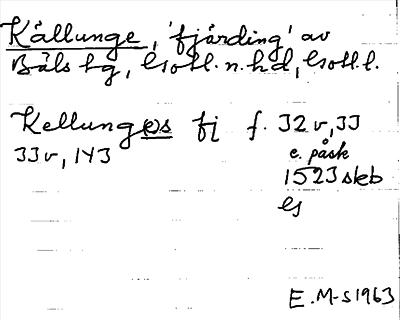 Källunge, 'fjärding' av
Bäls tg, Gotl. n. hd, Gotl. l.
Kellunges fj f. 32v, 33
33v, 143
e. påsk
1523 skeb
G
E. M-s 1963